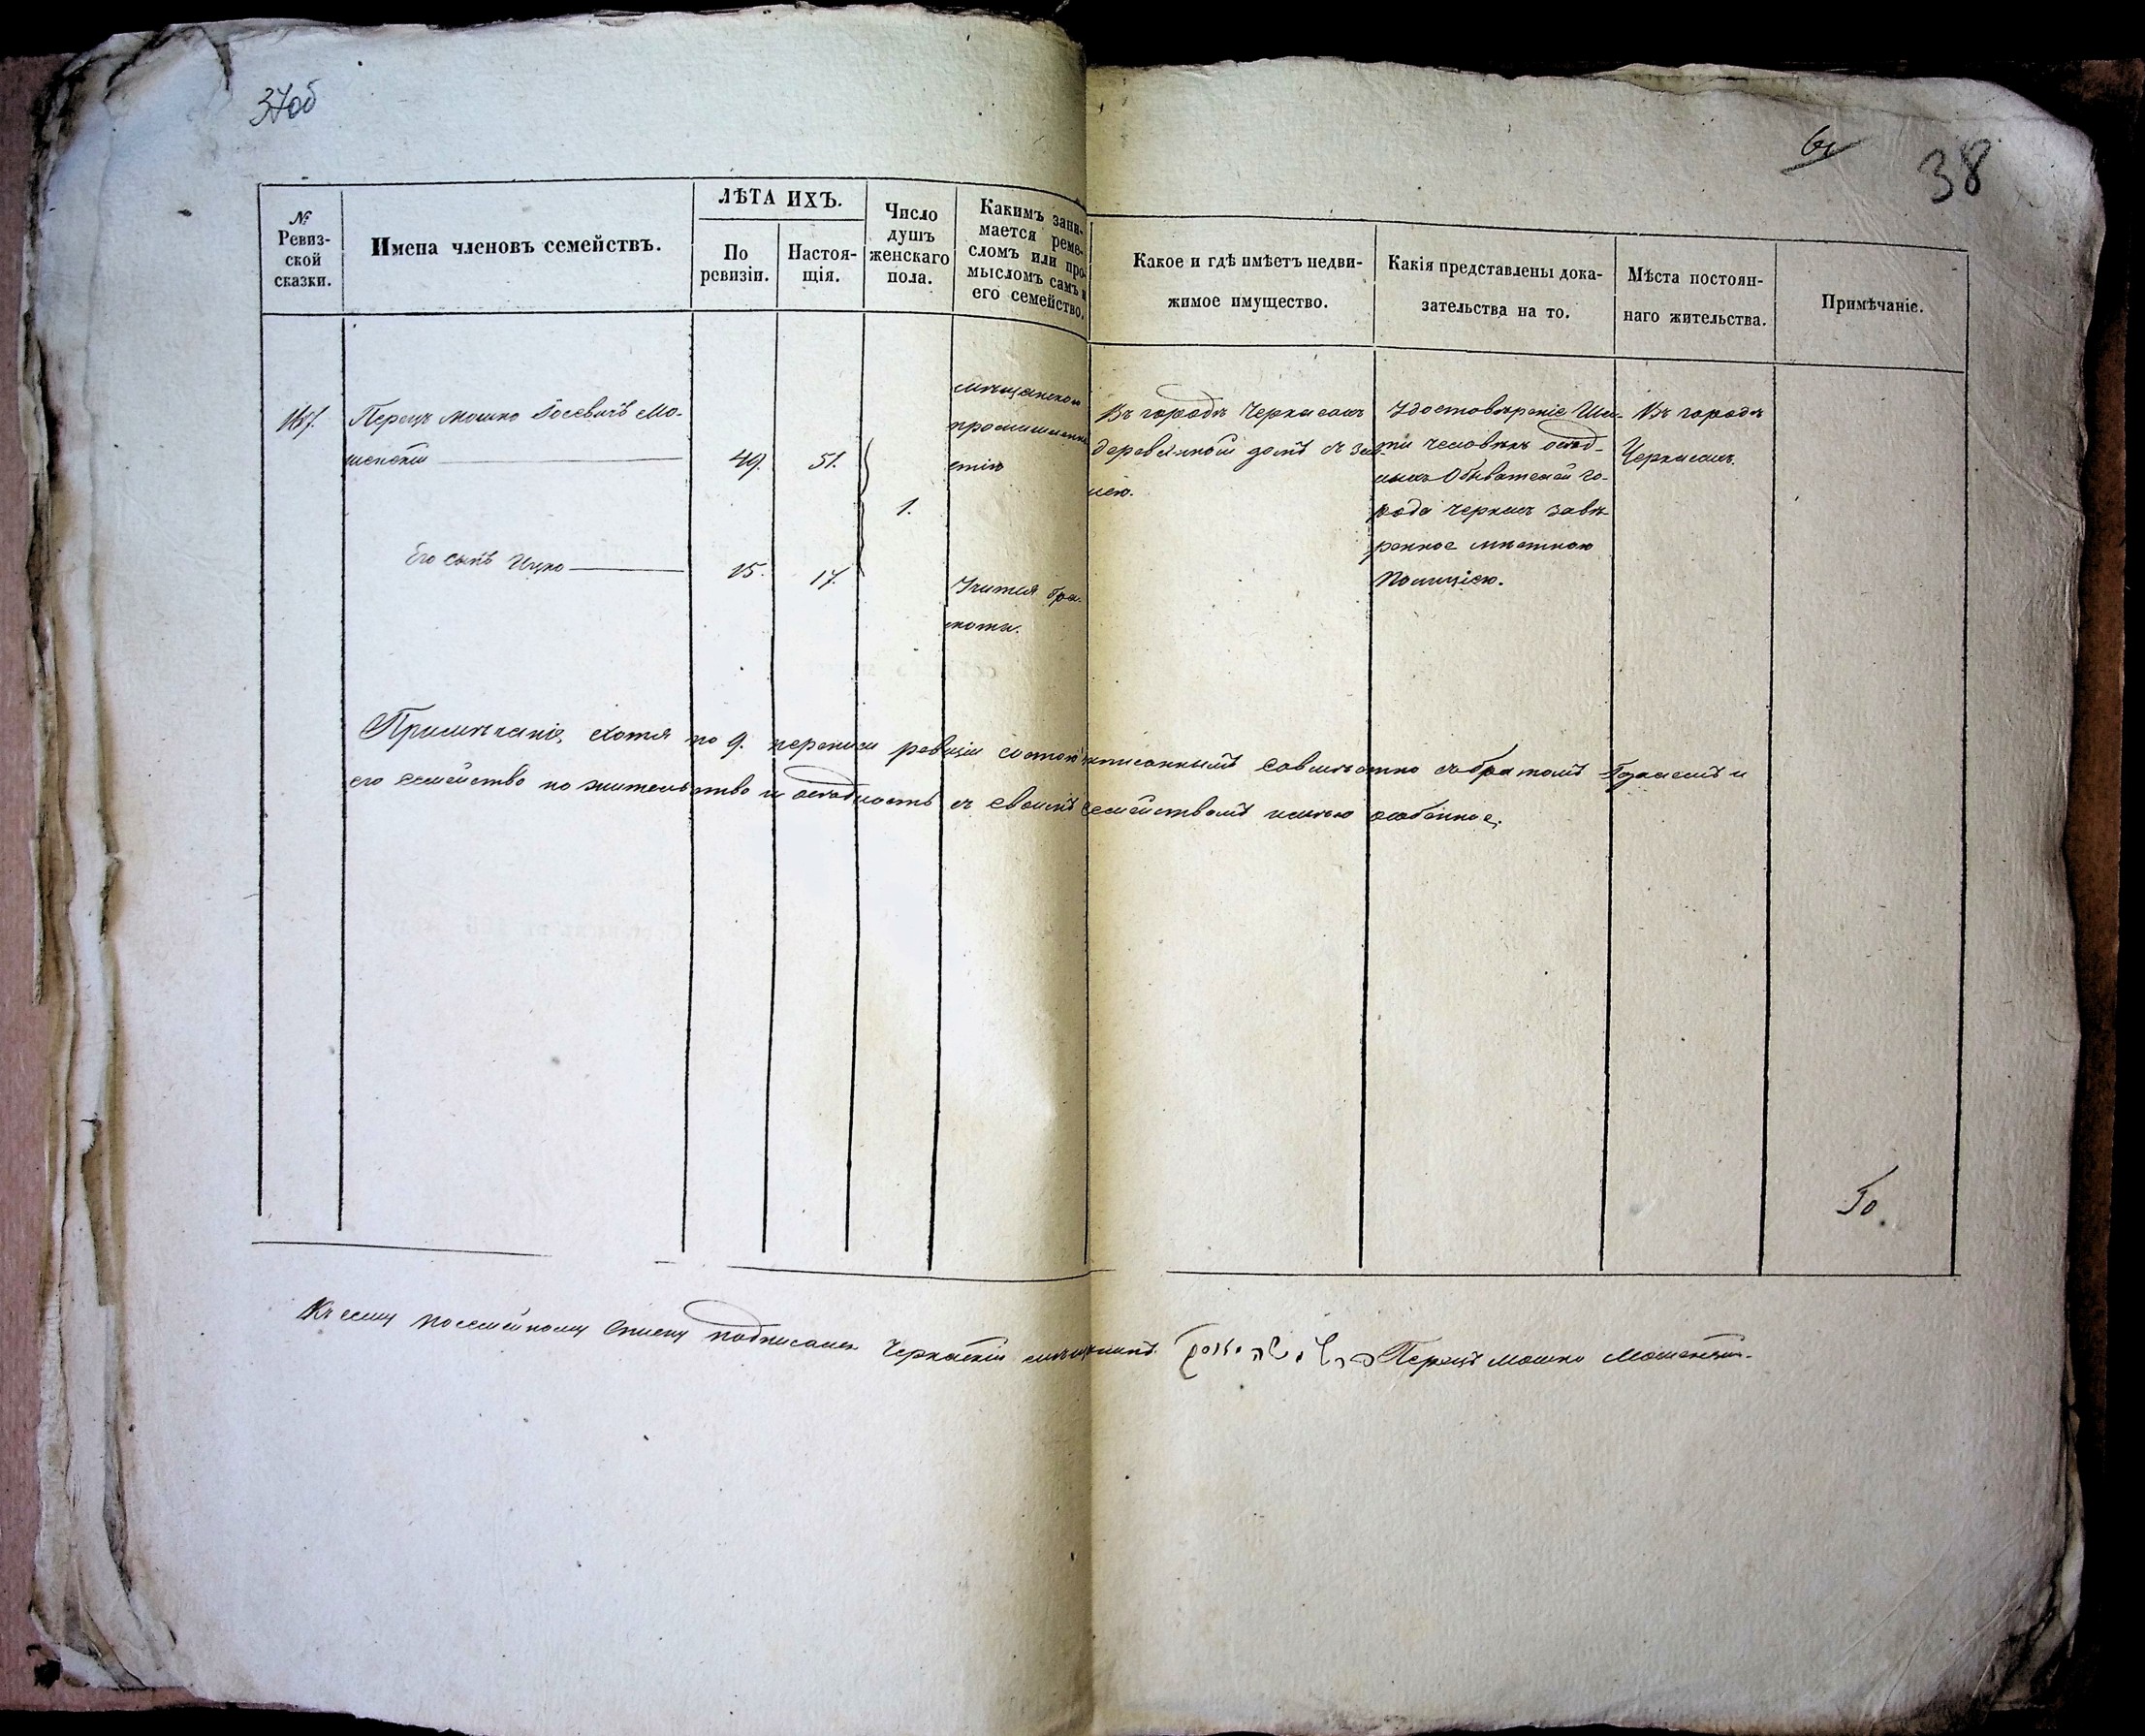 37об
38
№
Ревиз-
ской
сказки.
Имена членовъ семействъ.
ЛѢТА ИХЪ.
По
ревизіи.
Настоя-
щія.
Число
душъ
женскаго
пола.
Какимъ зани-
мается реме-
сломъ или про-
мысломъ самъ и
его семейство.
Какое и гдѣ имѣетъ недви-
жимое имущество.
Какія представлены дока-
зательства на то.
Мѣста постоян-
наго жительства.
Примѣчаніе.
Перецъ Мошко Іосевичъ Мо-
шенскій
49.
51.
1.
Его сынъ Ицко
15.
17.
мѣщанскою
промышлен
Учится гра-
моты.
Въ городѣ Черкасахъ
деревянной домъ съ зем-
лею.
Удостовѣреніе Шес-
ти человѣкъ осѣд-
лыхъ Обывателей го-
рода Черкасъ завѣ-
ренное мѣстною
Полиціею.
Въ городѣ
Черкасахъ.
Примѣчаніе, хотя по 9. переписи ревизіи состою записаннымъ совмѣстно съ братомъ и
его семейство но жительство и осѣдлость съ своимъ семействомъ имѣю особенное.
Къ сему посемейному списку подписался Черкаскій мѣщанинъ Перецъ Мошко Мошенскій.